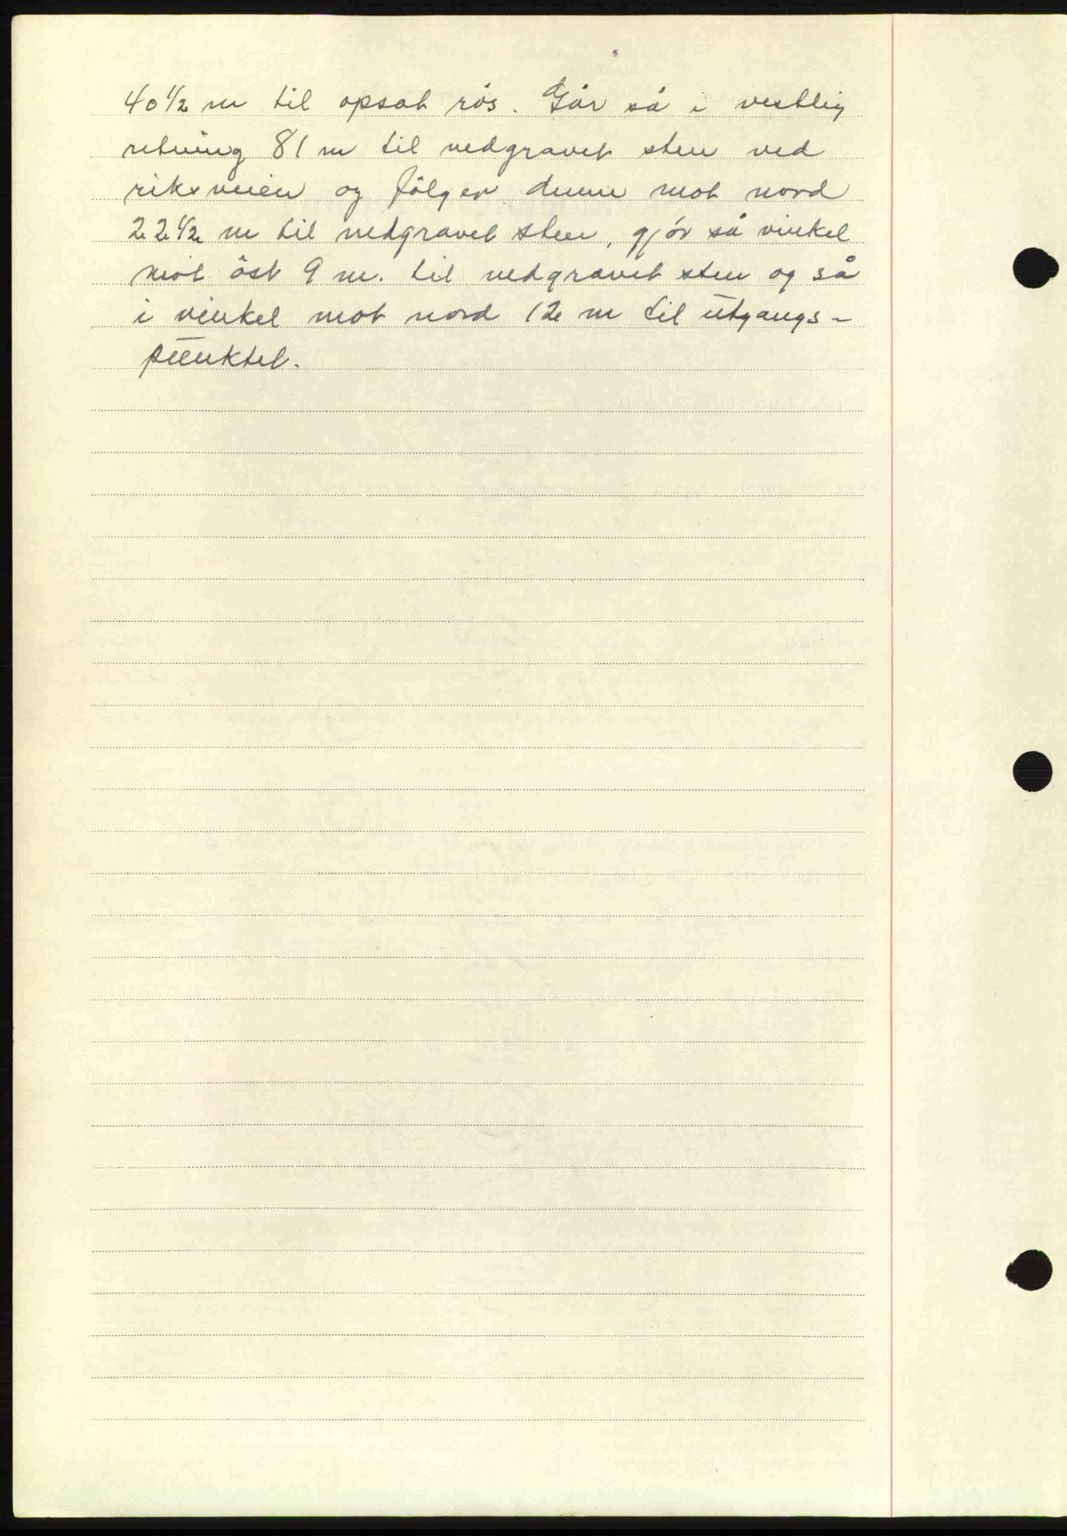 40 1/2 m til opsat rös. Går så i vestlig
retning 81 m til nedgravet sten ved
riksveien og fölger denne mot nord
22 1/2 m til nedgravet sten, gjör så vinkel
mot öst 9 m. til nedgravet sten og så
i vinkel mot nord 12 m til utgangs-
punktet.